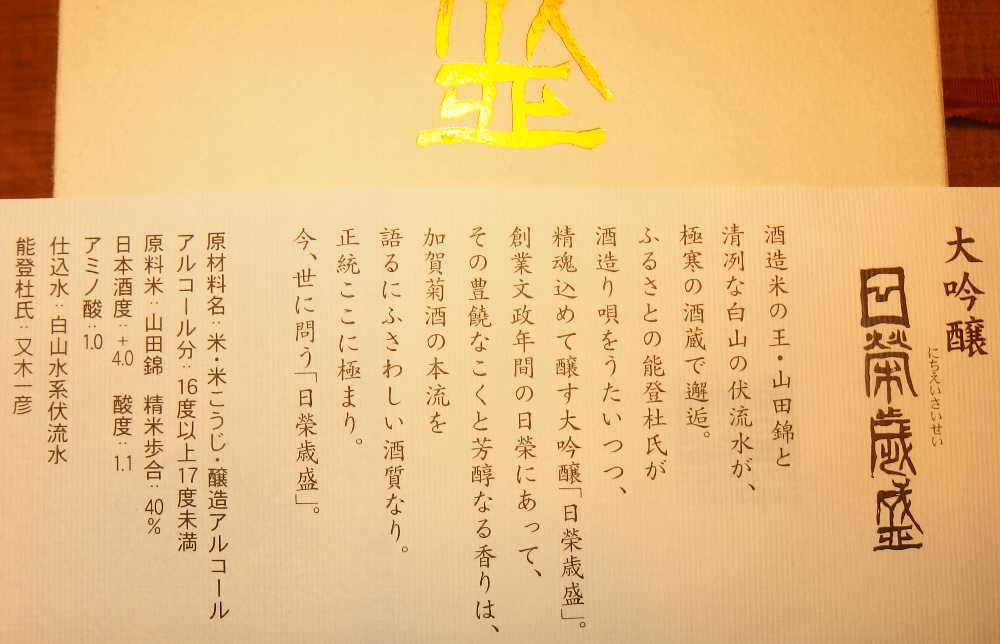 盛
大吟醸
日榮歳盛
にちえいさいせい
酒造米の王・山田錦と
清冽な白山の伏流水が、
極寒の酒蔵で邂逅。
ふるさとの能登杜氏が
酒造り唄をうたいつつ、
精魂込めて醸す大吟醸「日榮歳盛」。
創業文政年間の日榮にあって、
その豊饒なこくと芳醇なる香りは、
加賀菊酒の本流を
語るにふさわしい酒質なり。
正統ここに極まり。
今、世に問う「日榮歳盛」。
原材料名：米・米こうじ・醸造アルコール
アルコール分：16度以上17度未満
原料米：山田錦　精米歩合：40%
日本酒度：+4.0　酸度：1.1
アミノ酸：1.0
仕込水：白山水系伏流水
能登杜氏：又木一彦